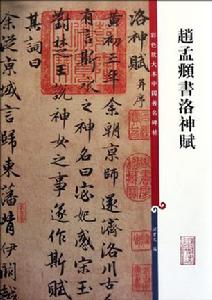 趙孟頫書洛神賦
彩色放大本中國著名碑帖
洛神賦 并序
黃初三年余朝京師還濟洛川古
有言斯水之神名曰宓妃感宋玉
對楚王說神女之事遂作斯賦
其詞曰
余從京域言歸東藩背伊闕